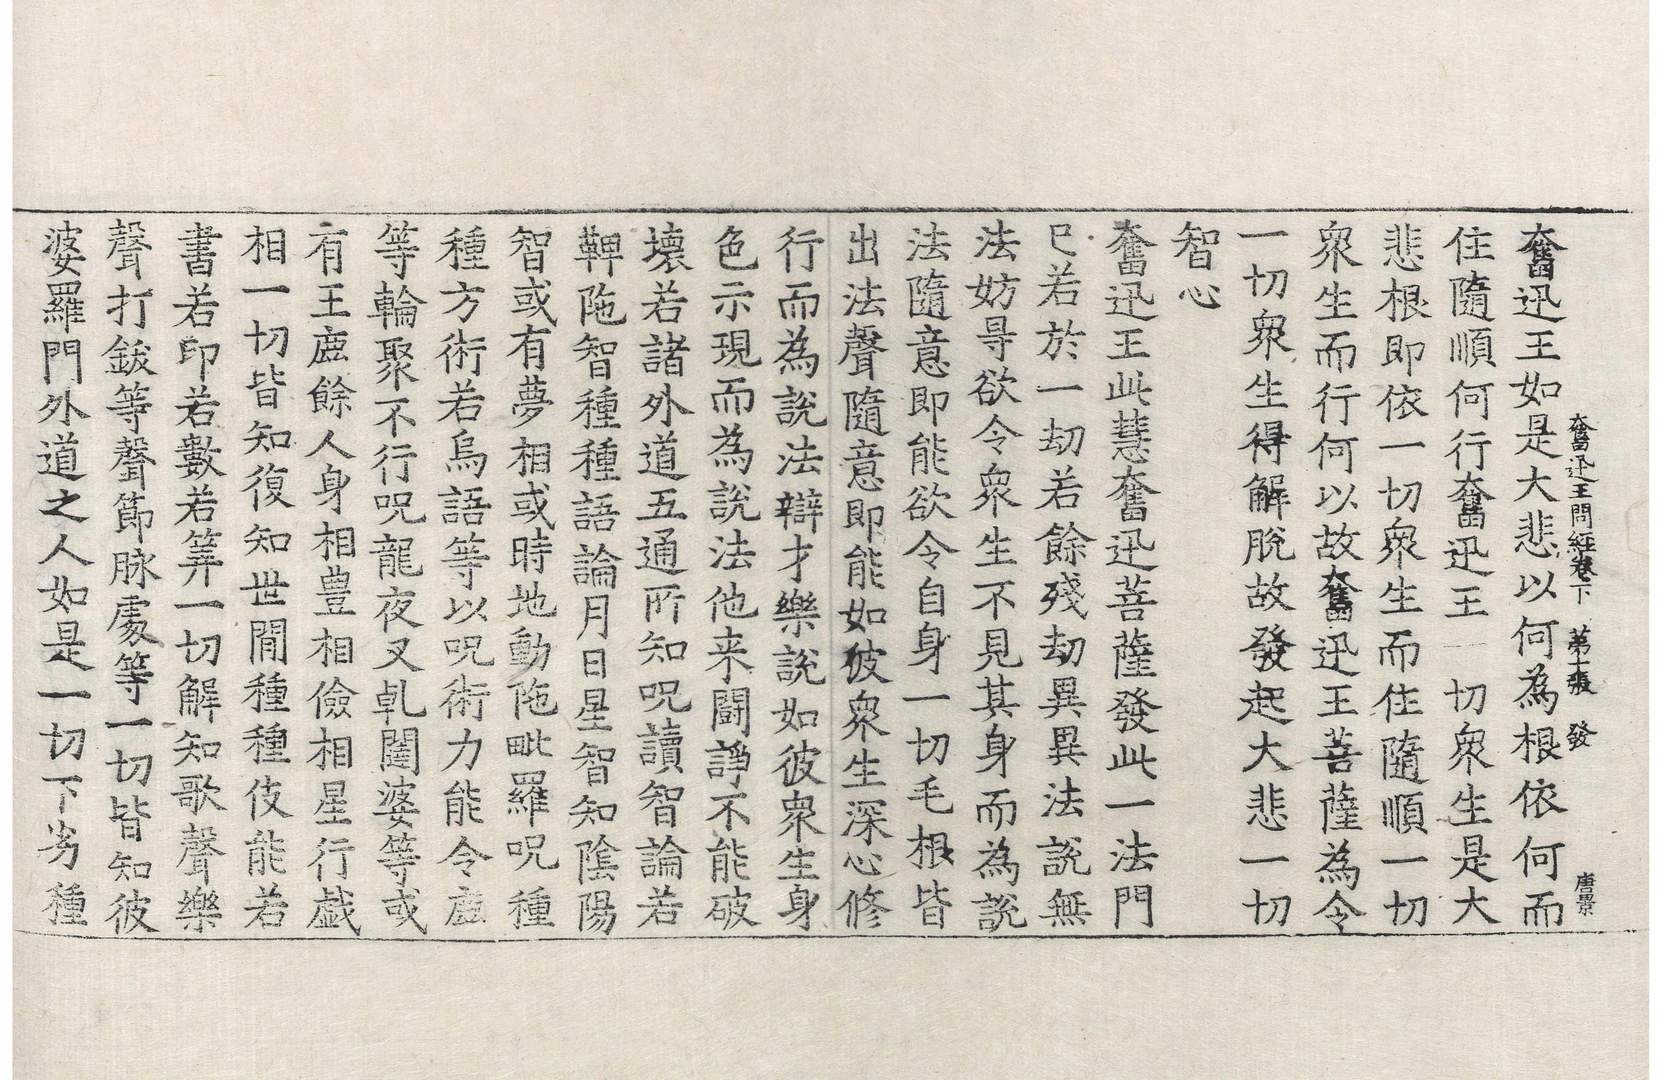 奮迅王問經卷下　第十張　發　唐景
奮迅王如是大悲以何為根依何而
住隨順何行奮迅王一切衆生是大
悲根即依一切衆生而住隨順一切
衆生而行何以故奮迅王菩薩為令
一切衆生得解脫故發起大悲一切
智心
奮迅王此慧奮迅菩薩發此一法門
已若於一劫若餘殘劫異異法說無
法妨㝵欲令衆生不見其身而為說
法隨意即能欲令自身一切毛根皆
出法聲隨意即能如彼衆生深心修
行而為說法辯才樂說如彼衆生身
色示現而為說法他来鬪諍不能破
壞若諸外道五通所知呪讀智論若
鞞陁智種種語論月日星智知陰陽
智或有夢相或時地動陁毗羅呪種
種方術若烏語等以呪術力能令𪋻
等輪聚不行呪龍夜叉乹闥婆等或
有王𪋻餘人身相豊相儉相星行戱
相一切皆知復知世間種種伎能若
書若印若數若筭一切解知歌聲樂
聲打鈸等聲節脉處等一切皆知彼
婆羅門外道之人如是一切下劣種